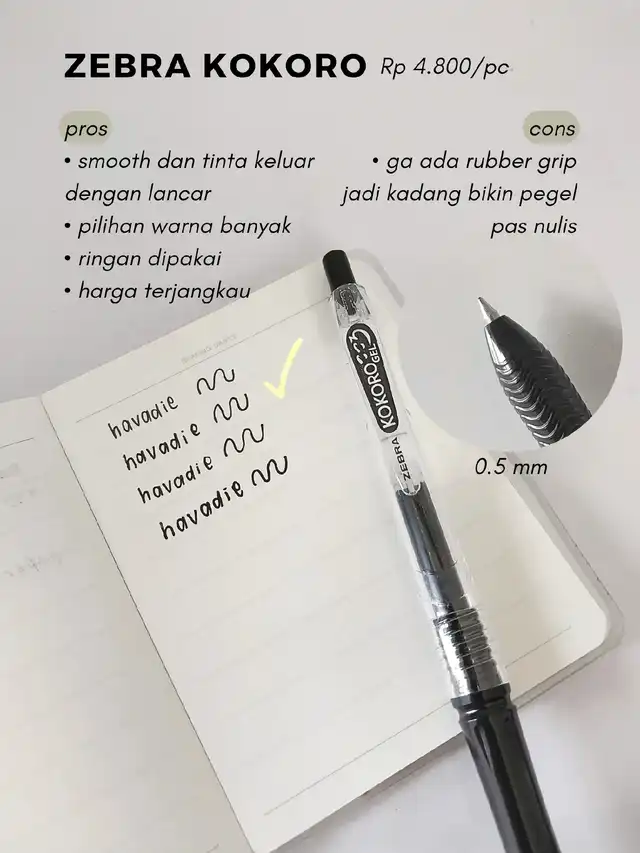 ZEBRA KOKORO Rp 4.800/pc
pros
• smooth dan tinta keluar
dengan lancar
• pilihan warna banyak
• ringan dipakai
• harga terjangkau
cons
• ga ada rubber grip
jadi kadang bikin pegel
pas nulis
0.5 mm
havadie
havadie
havadie
havadie
ZEBRA KOKORO GEL